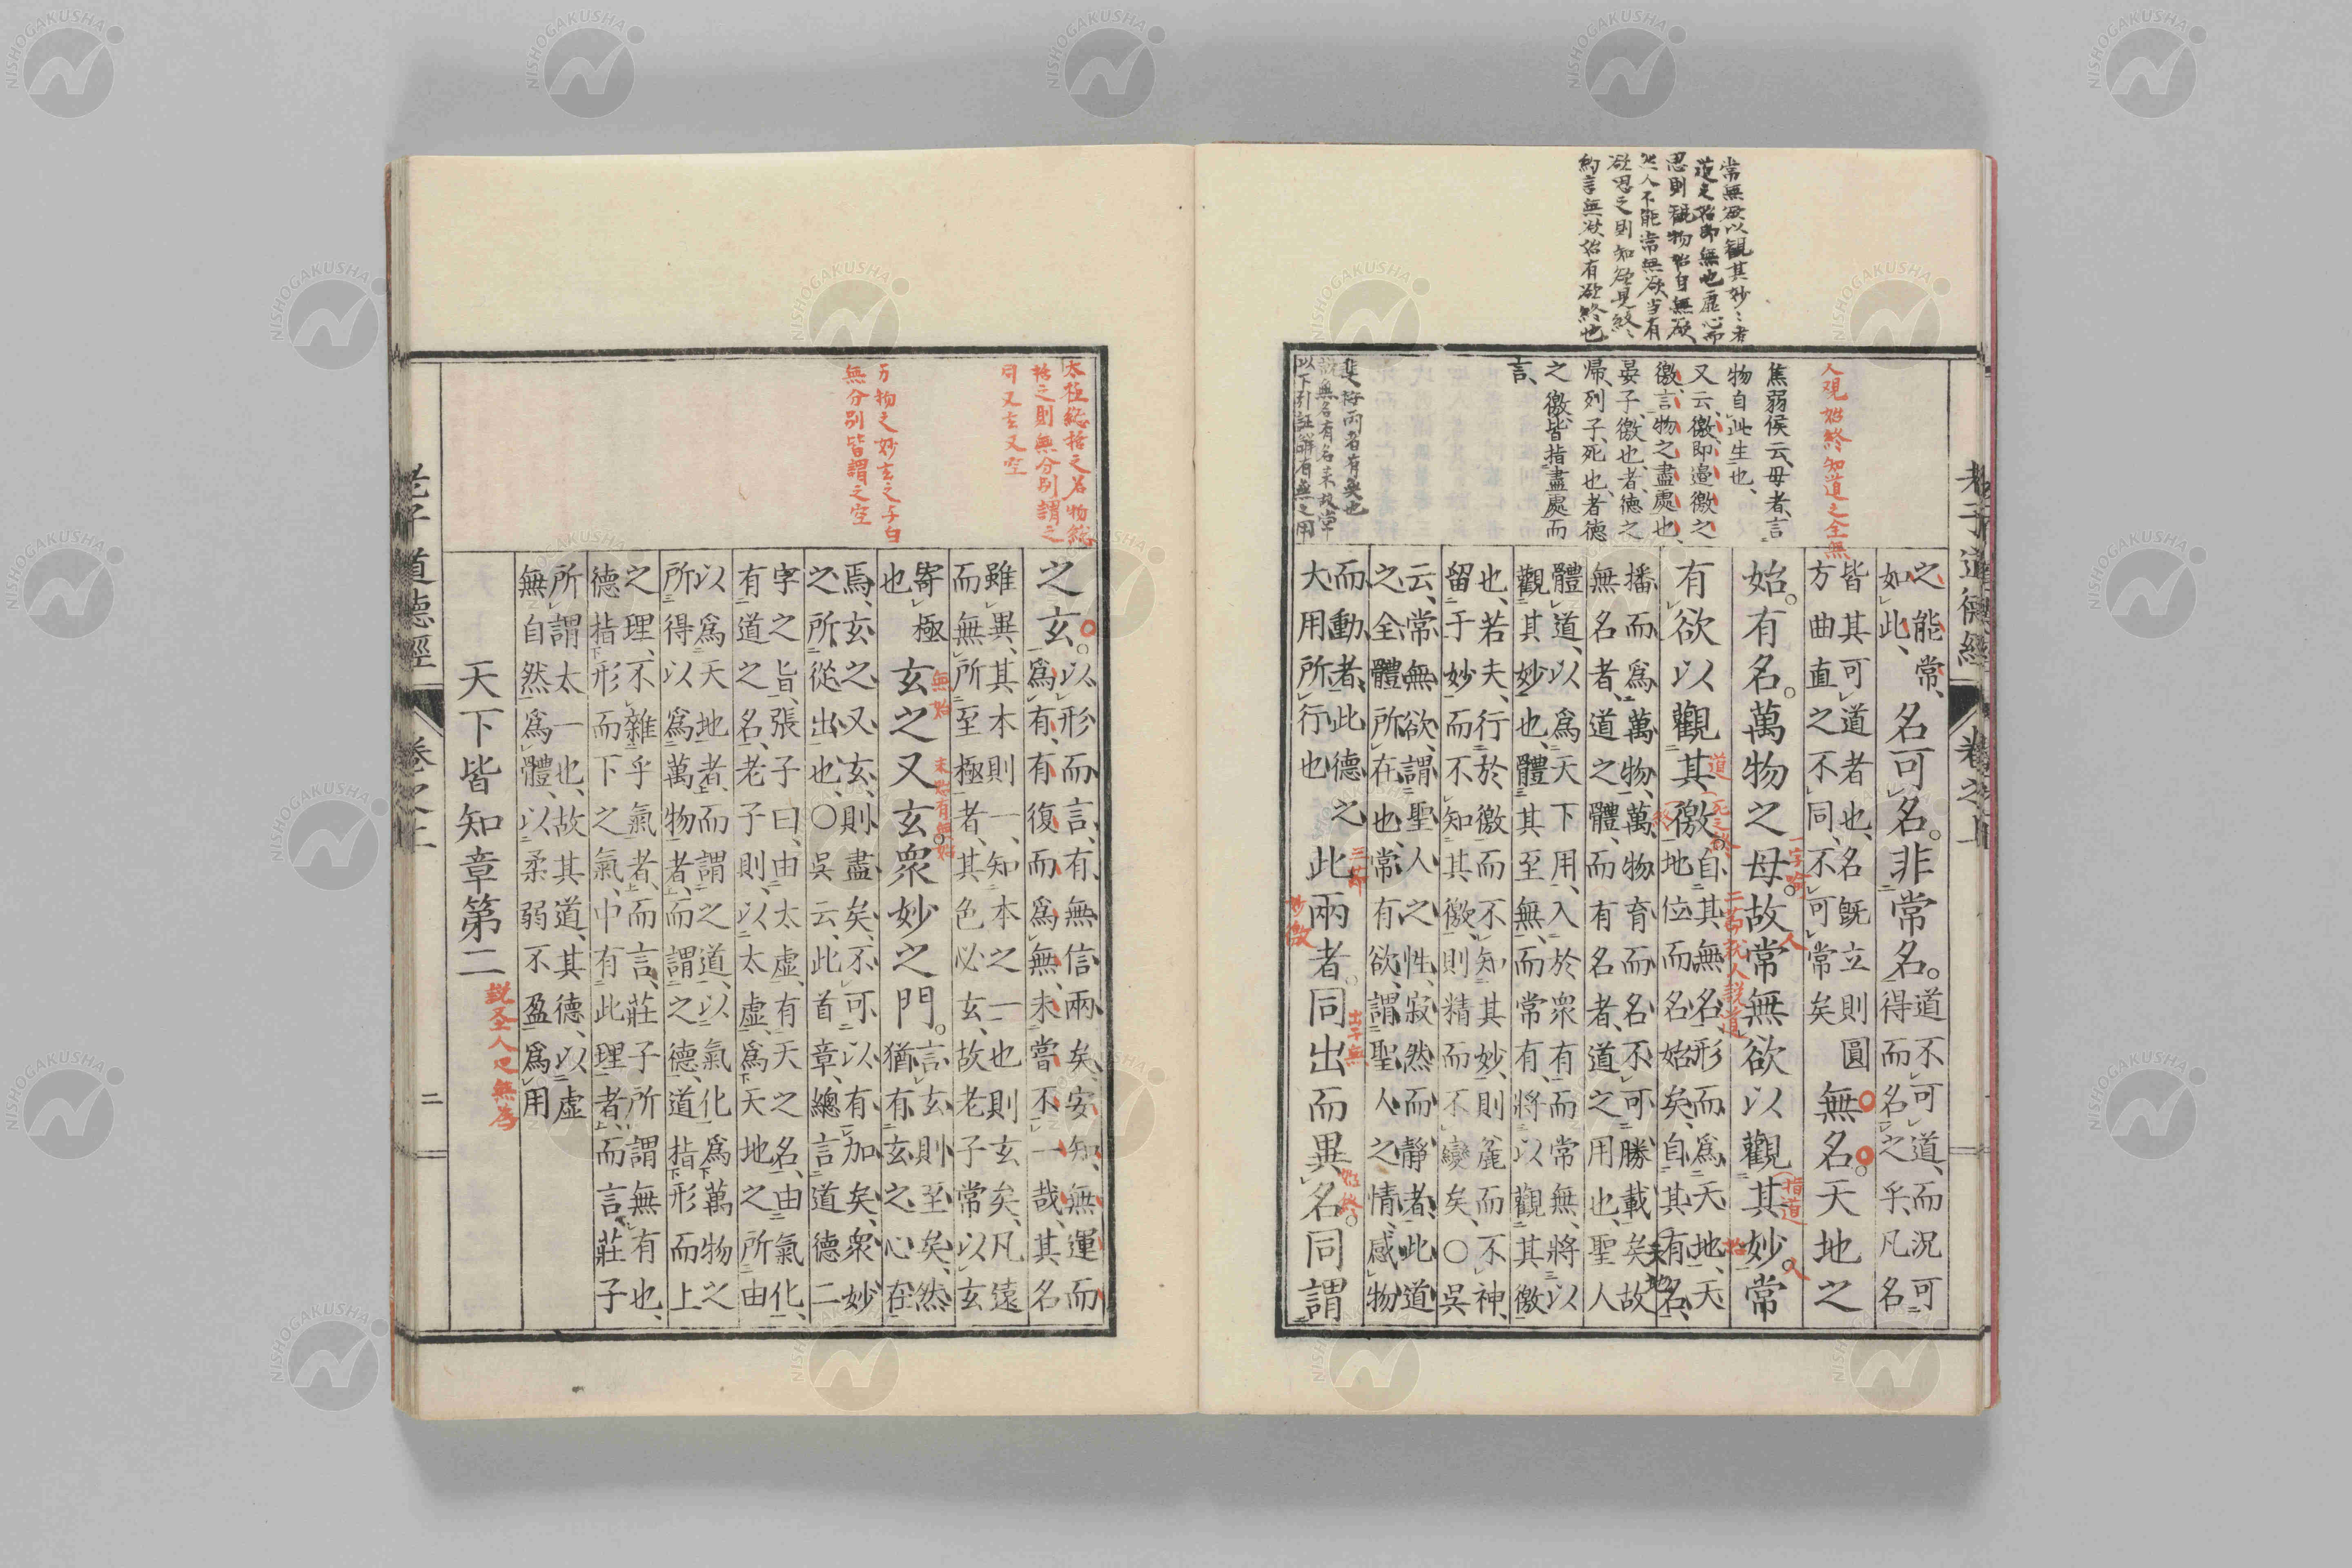 常無欲以觀其妙〻者
道之始即無也虛心而
思則観物始自無欲
然人不能常無欲当有
欲思之則知欲見終〻
約言無欲始有欲終也
人観始終知道之全無
焦弱侯云、母者、言
物自此生也、
又云、徼即邉徼之
徼、言物之盡處也、
晏子、徼也者、德之
帰、列子、死也者德
之徼、皆指盡處而
言、
以下引証解有無之用
老子道德經 卷之上
之能常、
如此、
名可名。非常名。
道不可道、而況可
得而名之乎、凡名
皆其可道者也、名既立則圓
方曲直之不同、不可常矣
無名。天地之
始。有名。萬物之母。故常無欲以觀其妙。常
有欲以觀其徼
自其無名、形而爲天地、天
地位而名始矣、自其有名、
播而爲萬物、萬物育而名不可勝載矣、故
無名者、道之體、而有名者、道之用也、聖人
體道、以爲天下用、入於衆有、而常無、將以
觀其妙也、體其至無、而常有、將以觀其徼
也、若夫行於徼而不知其妙、則麁而不神、
留于妙而不知其徼、則精而不變矣、〇吳
云、常無欲、謂聖人之性、寂然而靜者、此道
之全體所在也、常有欲、謂聖人之情、感物
而動者、此德之
大用所行也
此兩者同出而異名同謂
道
一字喻
人
二句就人説道
指道
始
人
妙徼
始終
太極総括之名物総
括之則無分別謂之
同又玄又空
万物之妙玄之与白
無分別皆謂之空
之玄。
以形而言、有無信兩矣、安知無運而
爲有、有復而爲無、未嘗不一哉、其名
雖異、其本則一、知本之一也則玄矣、凡遠
而無所至極者、其色必玄、故老子常以玄
寄極
也
玄之又玄衆妙之門。
言玄則至矣、然
猶有玄之心在
焉、玄之又玄、則盡矣、不可以有加矣、衆妙
之所從出也、〇吳云、此首章、總言道德二
字之旨、張子曰、由太虛、有天之名、由氣化、
有道之名、老子則以太虛爲天地之所由
以爲天地者、而謂之道、以氣化爲萬物之
所得以爲萬物者、而謂之德、道指形而上
之理、不雜乎氣者、而言、莊子所謂無有也、
德指形而下之氣、中有此理者、而言、莊子
所謂太一也、故其道、其德、以虛
無自然爲體、以柔弱不盈爲用
無始
未思有無始
天下皆知章第二
説圣人只無為
老子道德經 卷之上 二
NISHOGAKUSHA